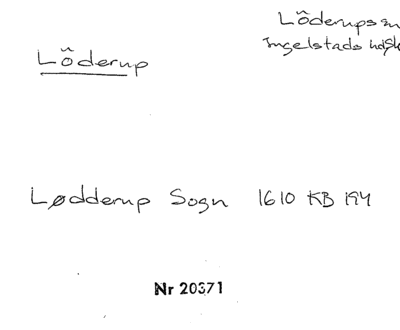 Löderups sn
Ingelstads hd
Löderup
Lødderup Sogn 1610 KB 194
Nr 20371